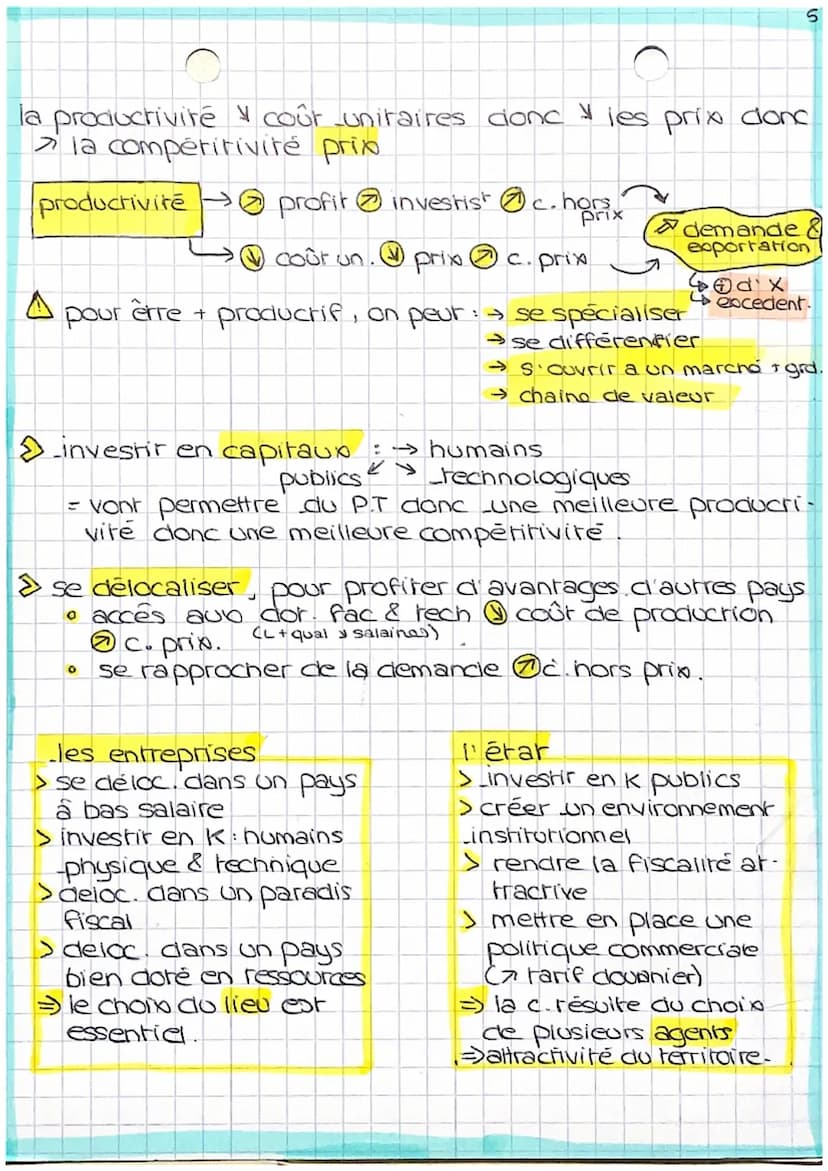 5
la productivité ↘ coût unitaires donc ↘ les prix donc
↗ la compétitivité prix
productivité → ↗ profit ↗ investist ↗ c. hors prix
↗ demande & exportation
→ ↘ coût un. ↘ prix ↗ c. prix
↳ ⊕ d' X
↳ excedent.
⚠ pour être + productif, on peut : → se spécialiser
→ se différentier
→ s'ouvrir a un marché + grd.
→ chaine de valeur
> investir en capitaux : → humains
publics ↙ ↘ technologiques
= vont permettre du P.T donc une meilleure producti-
vité donc une meilleure compétitivité.
> se délocaliser, pour profiter d'avantages d'autres pays
• accés aux dot. fac & tech ↘ coût de production
↗ c. prix. (L + qual ↘ salaires)
• se rapprocher de la demande ↗ c. hors prix.
les entreprises
> se déloc. dans un pays
à bas salaire
> investir en K : humains
physique & technique
> deloc. dans un paradis
fiscal
> deloc. dans un pays
bien doté en ressources
⇒ le choix du lieu est
essentiel.
l'état
> investir en K publics
> créer un environnement
institutionnel
> rendre la fiscalité at-
tractive
> mettre en place une
politique commerciale
(↗ tarif douanier)
⇒ la c. résulte du choix
de plusieurs agents
⇒ attractivité du territoire.